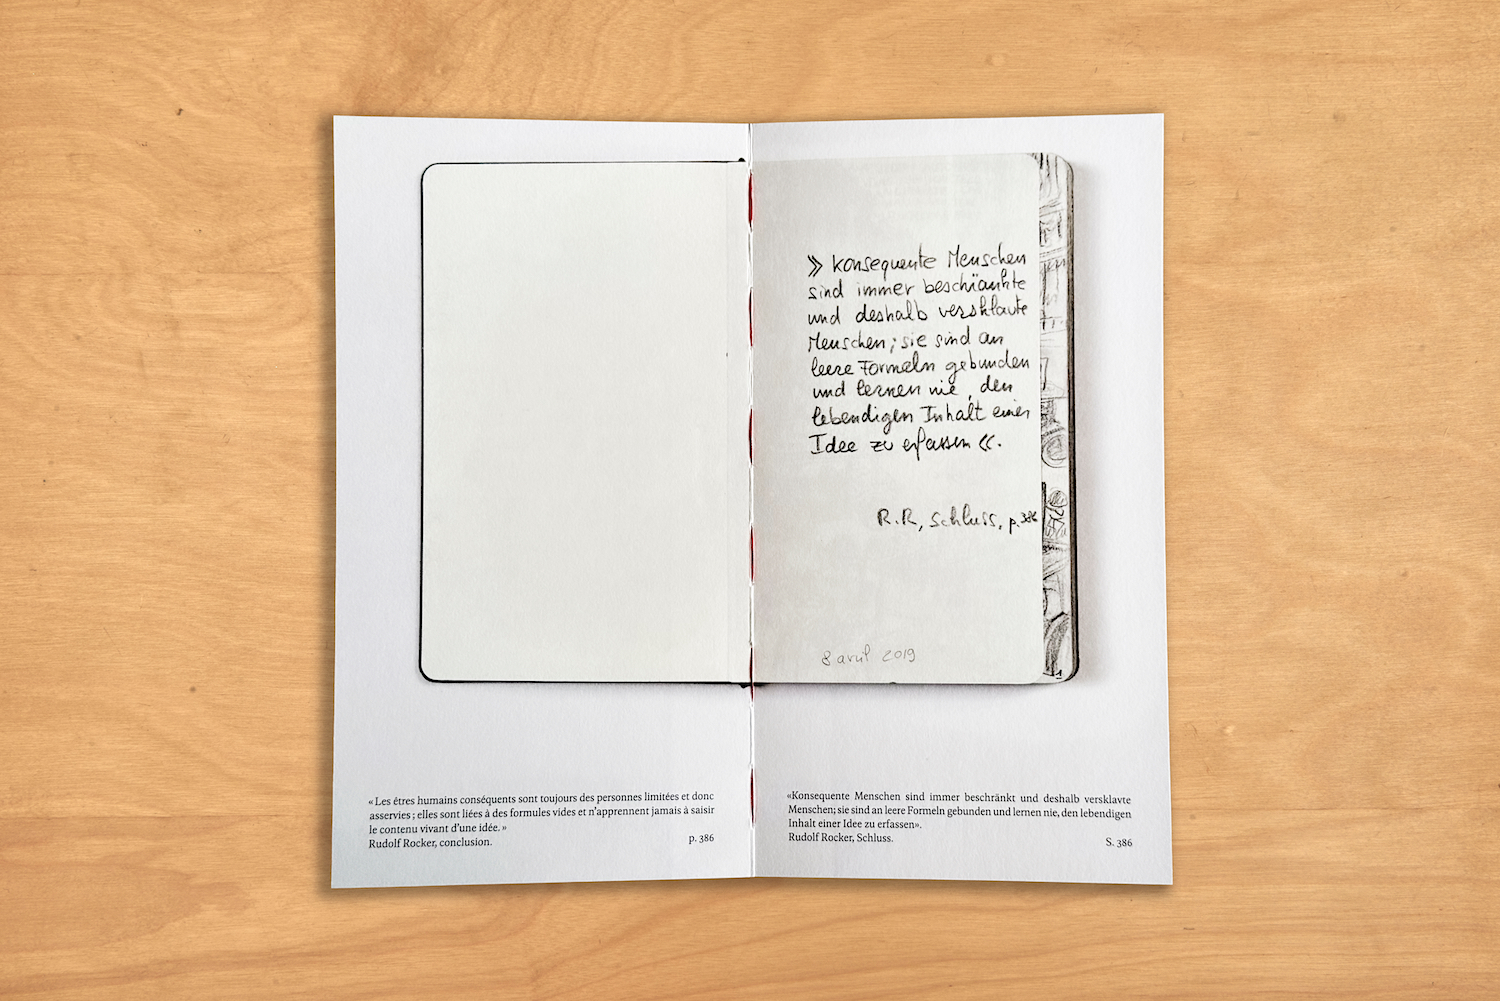 » Konsequente Menschen
sind immer beschränkte
und deshalb versklavte
Menschen; sie sind an
leere Formeln gebunden
und lernen nie, den
lebendigen Inhalt einer
Idee zu erfassen «.
R.R, Schluss, p.386
8 avril 2019
1
« Les êtres humains conséquents sont toujours des personnes limitées et donc
asservies ; elles sont liées à des formules vides et n’apprennent jamais à saisir
le contenu vivant d’une idée. »
Rudolf Rocker, conclusion.
p. 386
«Konsequente Menschen sind immer beschränkt und deshalb versklavte
Menschen; sie sind an leere Formeln gebunden und lernen nie, den lebendigen
Inhalt einer Idee zu erfassen».
Rudolf Rocker, Schluss.
S. 386